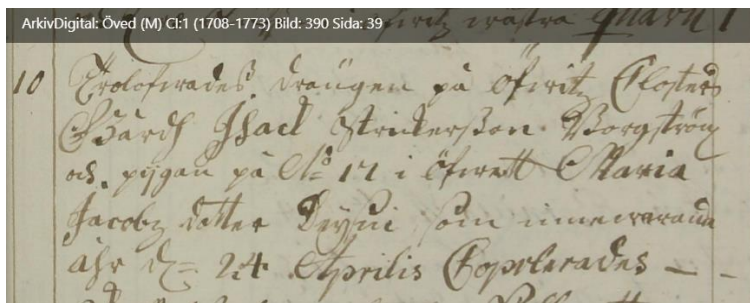 ArkivDigital: Öved (M) CI:1 (1708-1773) Bild: 390 Sida: 39
10 Trolofwades drängen på Öfwitz Closters
Gård Isack Strickersson Borgström
och pijgan på No 17 i Öfwett Maria
Jacobz dotter som innewarande
åhr d: 24 Aprilis Copulerades —